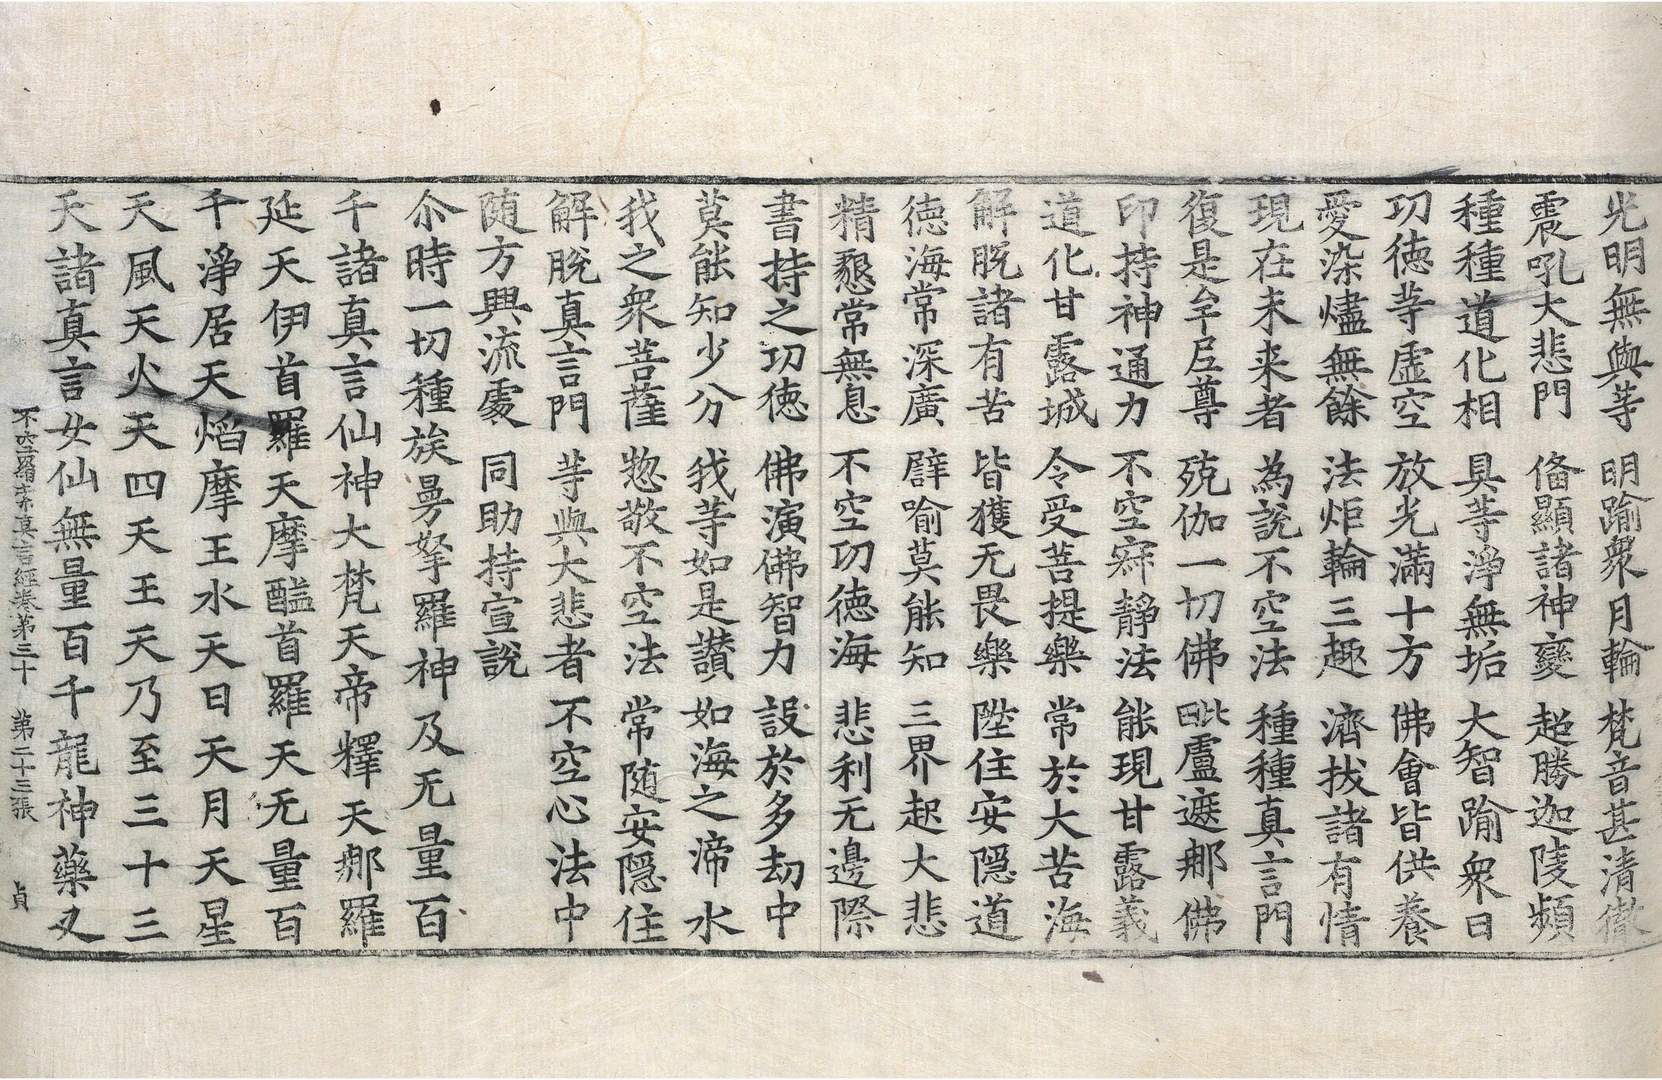 光明無與等 明踰衆月輪 梵音甚清徹
震吼大悲門 俻顯諸神變 超勝迦陵頻
種種道化相 具等淨無垢 大智踰衆日
功德等虚空 放光滿十方 佛會皆供養
愛染燼無餘 法炬輪三趣 濟拔諸有情
現在未来者 為說不空法 種種真言門
復是牟尼尊 殑伽一切佛 毗盧遮那佛
印持神通力 不空寂靜法 能現甘露義
道化甘露城 令受菩提樂 常於大苦海
解脫諸有苦 皆獲无畏樂 陞住安隱道
德海常深廣 譬喻莫能知 三界起大悲
精懇常無息 不空功德海 悲利无邊際
書持之功德 佛演佛智力 設於多劫中
莫能知少分 我等如是讃 如海之渧水
我之衆菩薩 惣敬不空法 常随安隱住
解脫真言門 等與大悲者 不空心法中
随方興流處 同助持宣說
尒時一切種族曼拏羅神及无量百
千諸真言仙神大梵天帝釋天那羅
延天伊首羅天摩醯首羅天无量百
千淨居天焰摩王水天日天月天星
天風天火天四天王天乃至三十三
天諸真言女仙無量百千龍神藥叉
不空羂索真言經卷第三十 第二十三張 貞